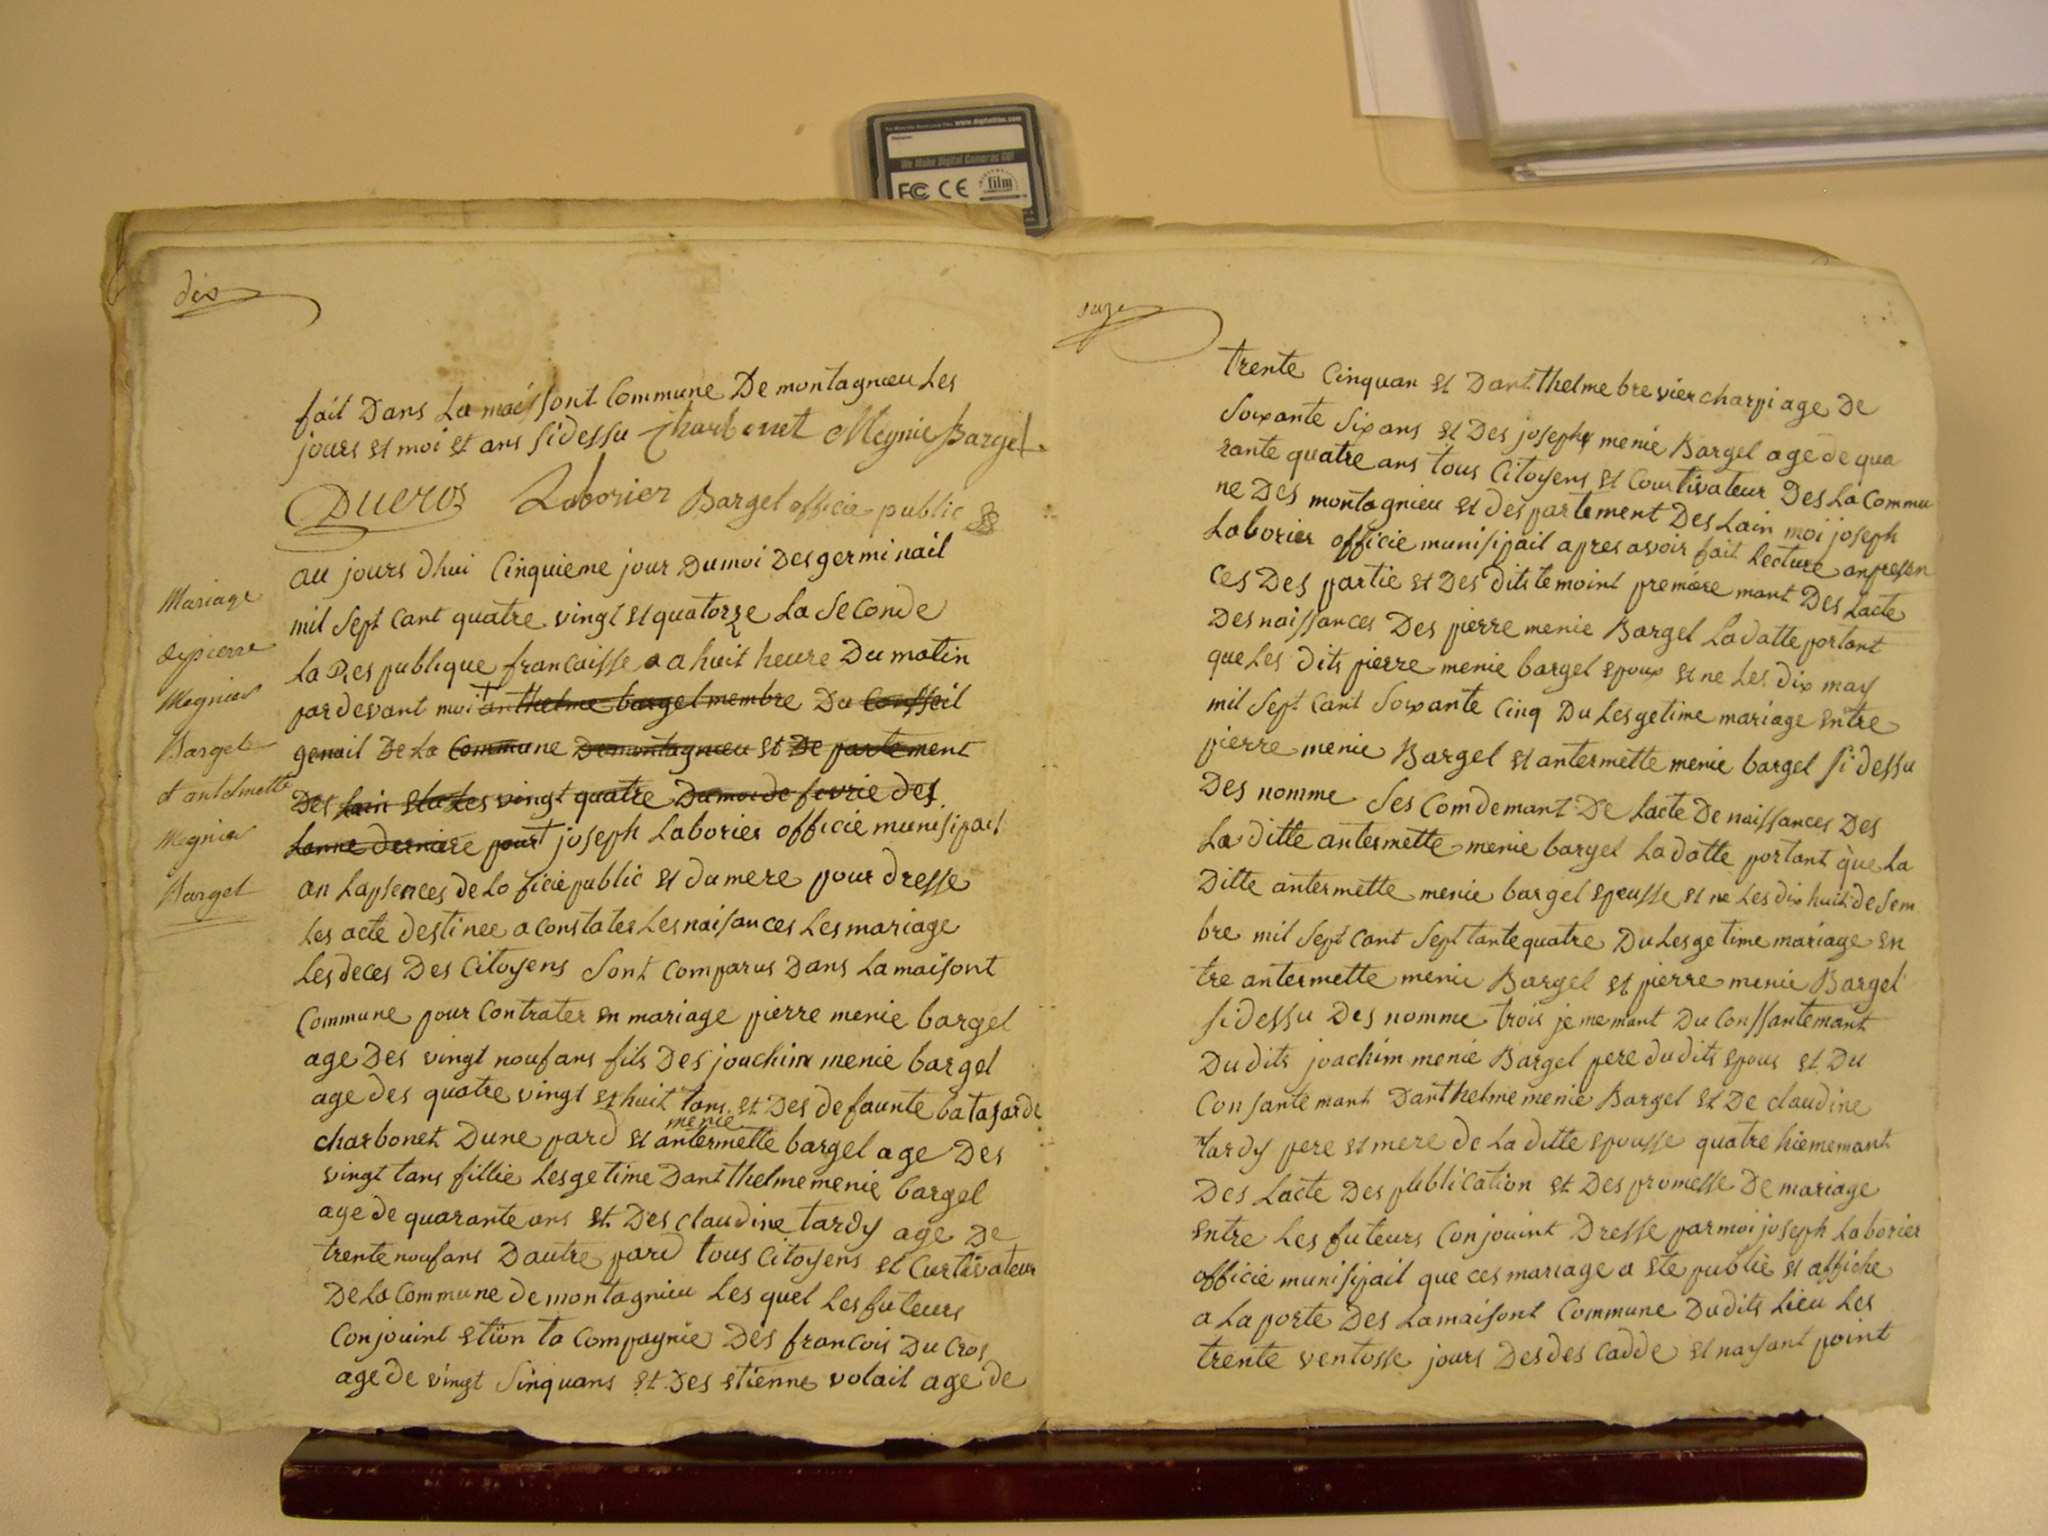 We Make Digital Cameras GO!
FC CE film
dix
fait Dans La maissont Commune De montagnieu Les
jours et moi et ans sidessu Charbonet Meynie Bargel
Ducros Laborier Bargel officie public
au jours dhui Cinquieme jour Dumoi Des germinail
mil sept cant quatre vingt et quatorze La seconde
La Respublique francaisse a a huit heure Du matin
pardevant moi anthelme bargel membre Du Consseil
genail De La Commune Demontagnieu et De partement
Des Lain elu Les vingt quatre Dumoi de fevrie des
Lanne derniere pourt joseph Laborier officie munisipail
an Lapsences de Lo ficie public et du mere pour dresse
Les acte destinee a constater Les naisances Les mariage
Les deces Des Citoyens sont comparus Dans La maisont
Commune pour Contrater en mariage pierre menie bargel
age Des vingt noufans fils Des joachim menie bargel
age des quatre vingt et huit tans et Des defaunte batasarde
charbonet Dune pard et antermette menie bargel age Des
vingt tans fillie Lesgetime Dant thelme menie bargel
age de quarante ans et Des claudine tardy age De
trente noufans Dautre pard tous Citoyens et Curtivateur
De La Commune de montagnieu Les quel Les futeurs
Conjouint etion ta Compagnie Des francois Du Cros
age de vingt sinquans et Des etienne volait age de
Mariage
de pierre
Megnier
Bargel
et antelmette
Megnier
Bargel
onze
trente Cinquan et Dant thelme brevier charpi age De
soixante six ans et Des joseph menie Bargel age de qua
rante quatre ans tous Citoyens et Courtivateur Des La Commu
ne Des montagnieu et des partement Des Lain moi joseph
Laborier officie munisipail apres avoir fait Lecture anpresen
ces Des partie et Des dits temoint premiere mant Des Lacte
Des naissances Des pierre menie Bargel La datte portant
que Les dits pierre menie bargel epoux et ne Les dix may
mil sept cant soixante Cinq Du Lesgetime mariage entre
pierre menie Bargel et antermette menie bargel si dessu
Des nomme ses Comdemant De Lacte De naissances Des
La ditte antermette menie bargel La datte portant que La
Ditte antermette menie bargel epeusse et ne Les dix huit desem
bre mil sept cant septtante quatre Du Lesgetime mariage en
tre antermette menie Bargel et pierre menie Bargel
si dessu Des nomme trois jememant Du Conssantemant
Du dits joachim menie Bargel pere du dits epous et Du
Consantemant Dant helme menie Bargel et De claudine
tardy pere et mere de La ditte epousse quatre hiememant
Des Lacte Des publication et Des promesse De mariage
entre Les futeurs Conjouint Dresse par moi joseph Laborier
officie munisipail que ces mariage a ete publie et affiche
a La porte Des La maisont Commune Du dits Lieu Les
trente ventosse jours Des des cadde et naysant point